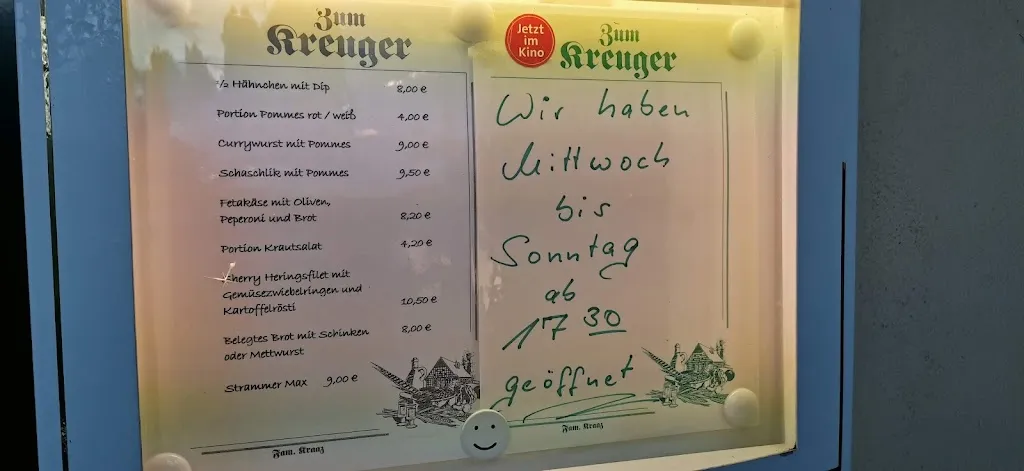 Zum
Kreuger
½ Hähnchen mit Dip 8,00 €
Portion Pommes rot / weiß 4,00 €
Currywurst mit Pommes 9,00 €
Schaschlik mit Pommes 9,50 €
Fetakäse mit Oliven,
Peperoni und Brot 8,20 €
Portion Krautsalat 4,20 €
Sherry Heringsfilet mit
Gemüsezwiebelringen und
Kartoffelrösti 10,50 €
Belegtes Brot mit Schinken 8,00 €
oder Mettwurst
Strammer Max 9,00 €
Fam. Kraaz
Jetzt
im
Kino
Zum
Kreuger
Wir haben
Mittwoch
bis
Sonntag
ab
17 30
geöffnet
Fam. Kraaz